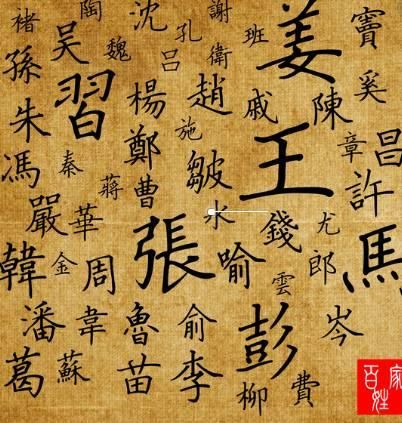 褚 陶 沈 謝 班 姜 竇
吴 魏 孔 呂 衛
孫 習 楊 趙 戚 陳 奚
朱 鄭 施 章 昌
馮 秦 蔣 曹 皺 王 許
嚴 華 張 水 錢 尤 馬
韓 金 周 喻 雲 郎
潘 韋 魯 俞 彭 岑
葛 蘇 苗 李 柳 費
百家姓